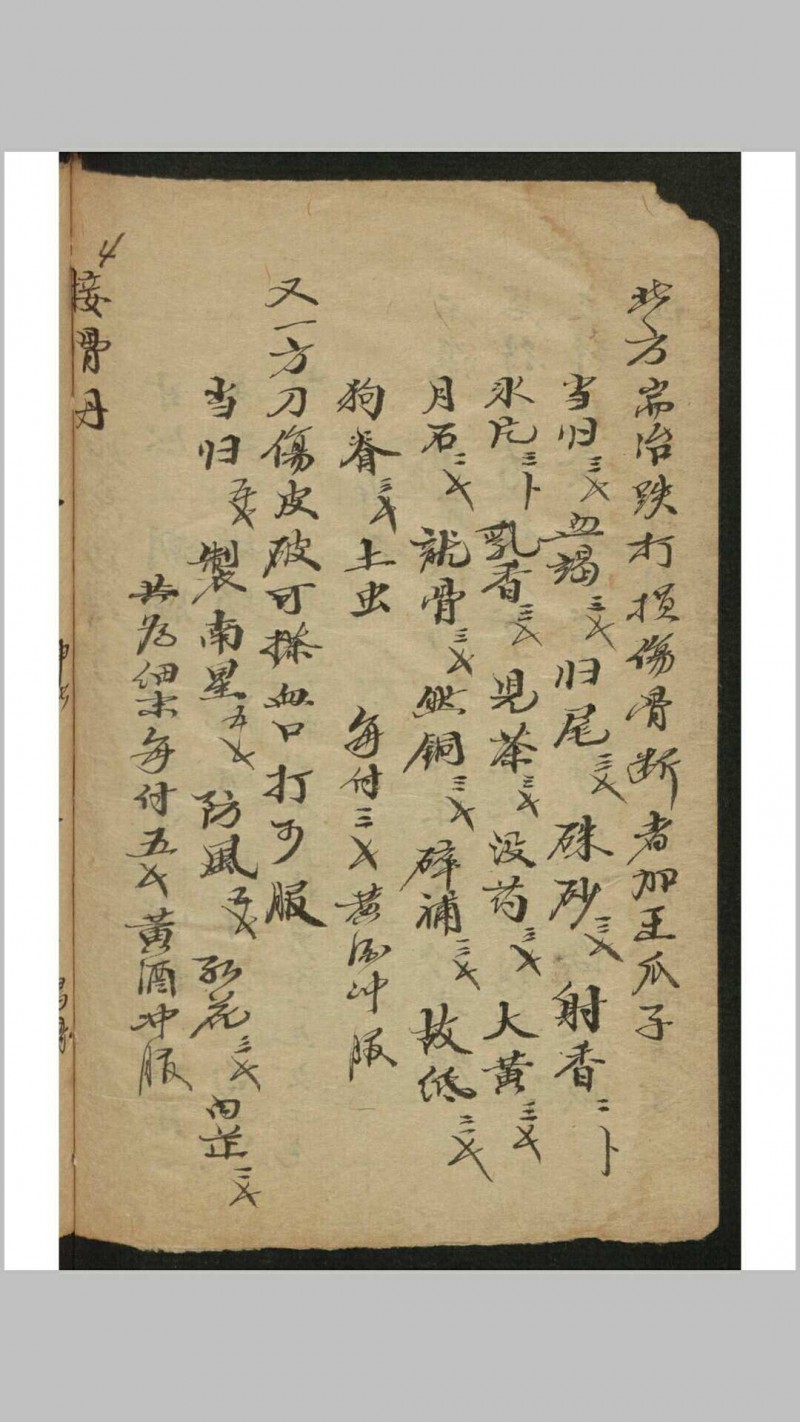 此方耑治跌打损傷骨断者加王瓜子
当归三钱 血竭三钱 归尾三钱 硃砂三钱 射香二卜
氷片三卜 乳香三钱 児茶三钱 没药三钱 大黄三钱
月石二钱 龍骨三钱 然铜三钱 碎補三钱 故纸二钱
狗脊三钱 土虫 每付三钱黄酒冲服
又一方刀傷皮破可搽血口打可服
当归五钱 製南星五钱 防風五钱 红花三钱 白芷三钱
共為細末每付五钱黄酒冲服
4
接骨丹